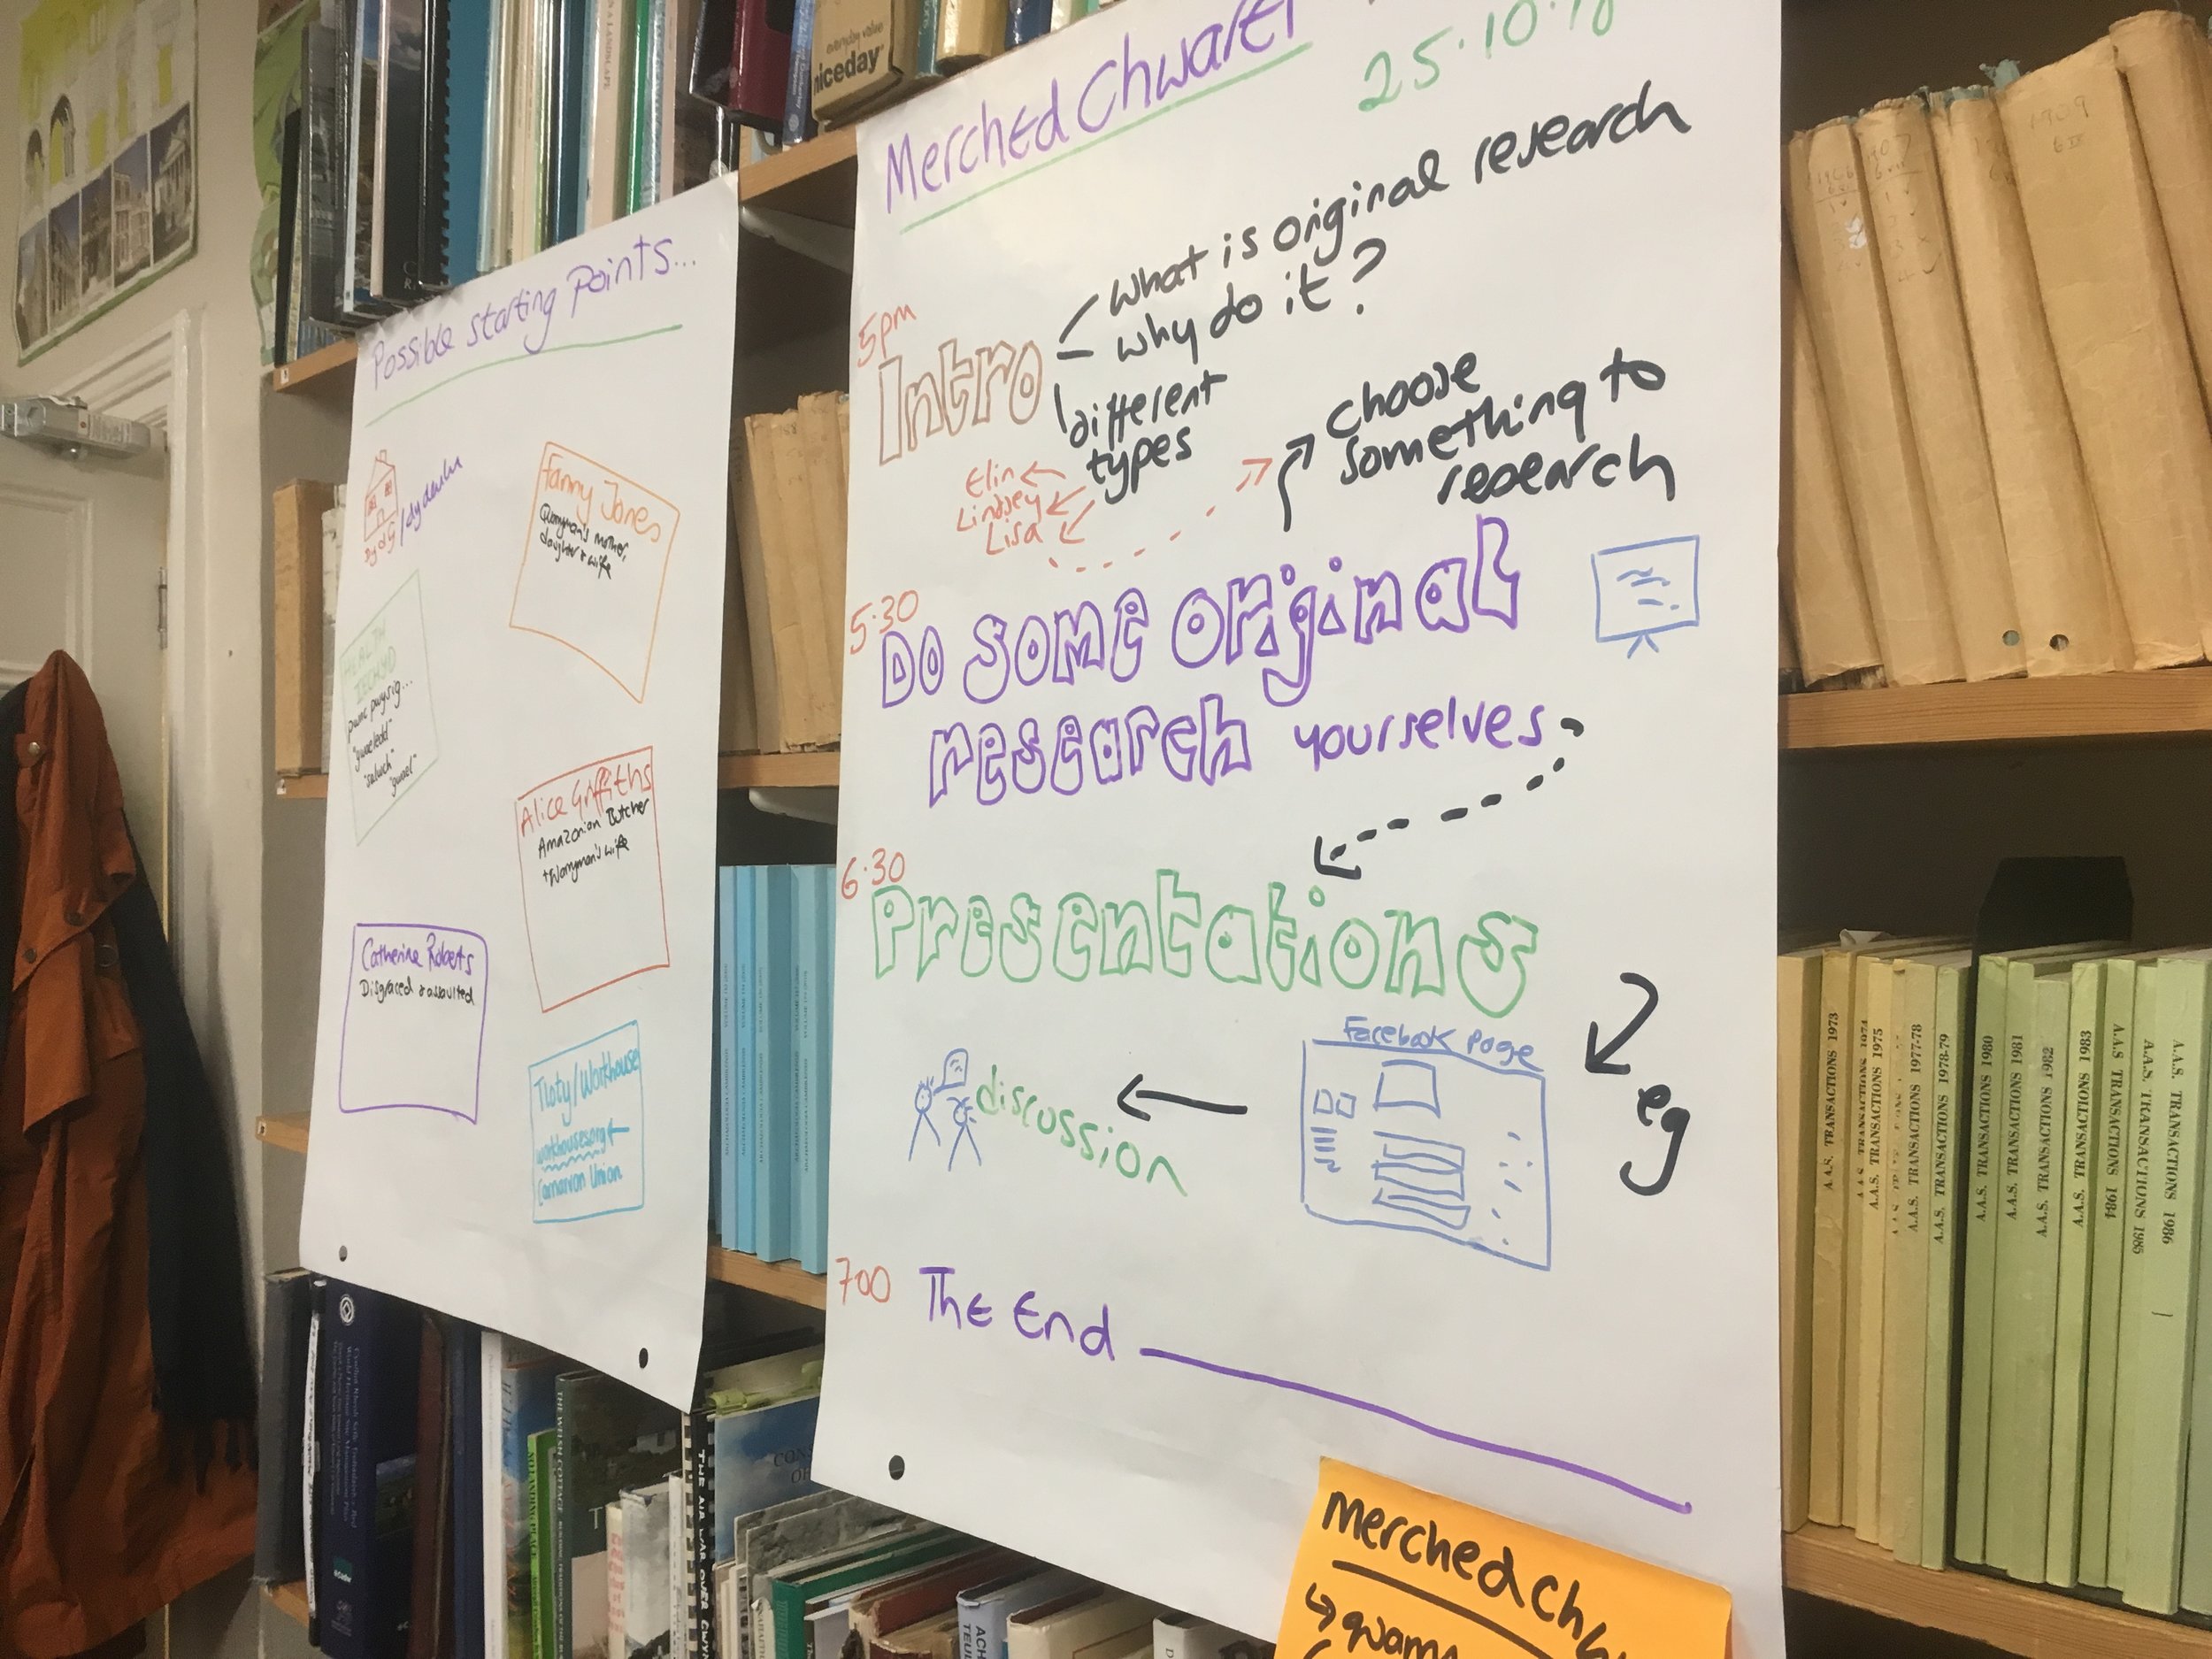 Possible starting points...
Fanny Jones
Quarryman's mother,
daughter & wife
"gwaeledd"
"salwch"
"gwael"
Alice Griffiths
Amazonian Butcher
+ Quarryman's wife
Catherine Roberts
Disgraced & assaulted
Tloty/Workhouse
workhouses.org
Carnarvon Union
Merched Chwarel
25.10.18
5pm
Intro
What is original research
why do it?
different
types
Elin
Lindsey
Lisa
choose
something to
research
5.30
Do some original
research yourselves
6.30
Presentations
eg
Facebook page
discussion
700
The End
merched Chw
niceday
1909
A.A.S. TRANSACTIONS 1973
A.A.S. TRANSACTIONS 1974
A.A.S. TRANSACTIONS 1975
A.A.S. TRANSACTIONS 1977-78
A.A.S. TRANSACTIONS 1978-79
A.A.S. TRANSACTIONS 1980
A.A.S. TRANSACTIONS 1981
A.A.S. TRANSACTIONS 1982
A.A.S. TRANSACTIONS 1983
A.A.S. TRANSACTIONS 1984
A.A.S. TRANSACTIONS 1985
A.A.S. TRANSACTIONS 1986